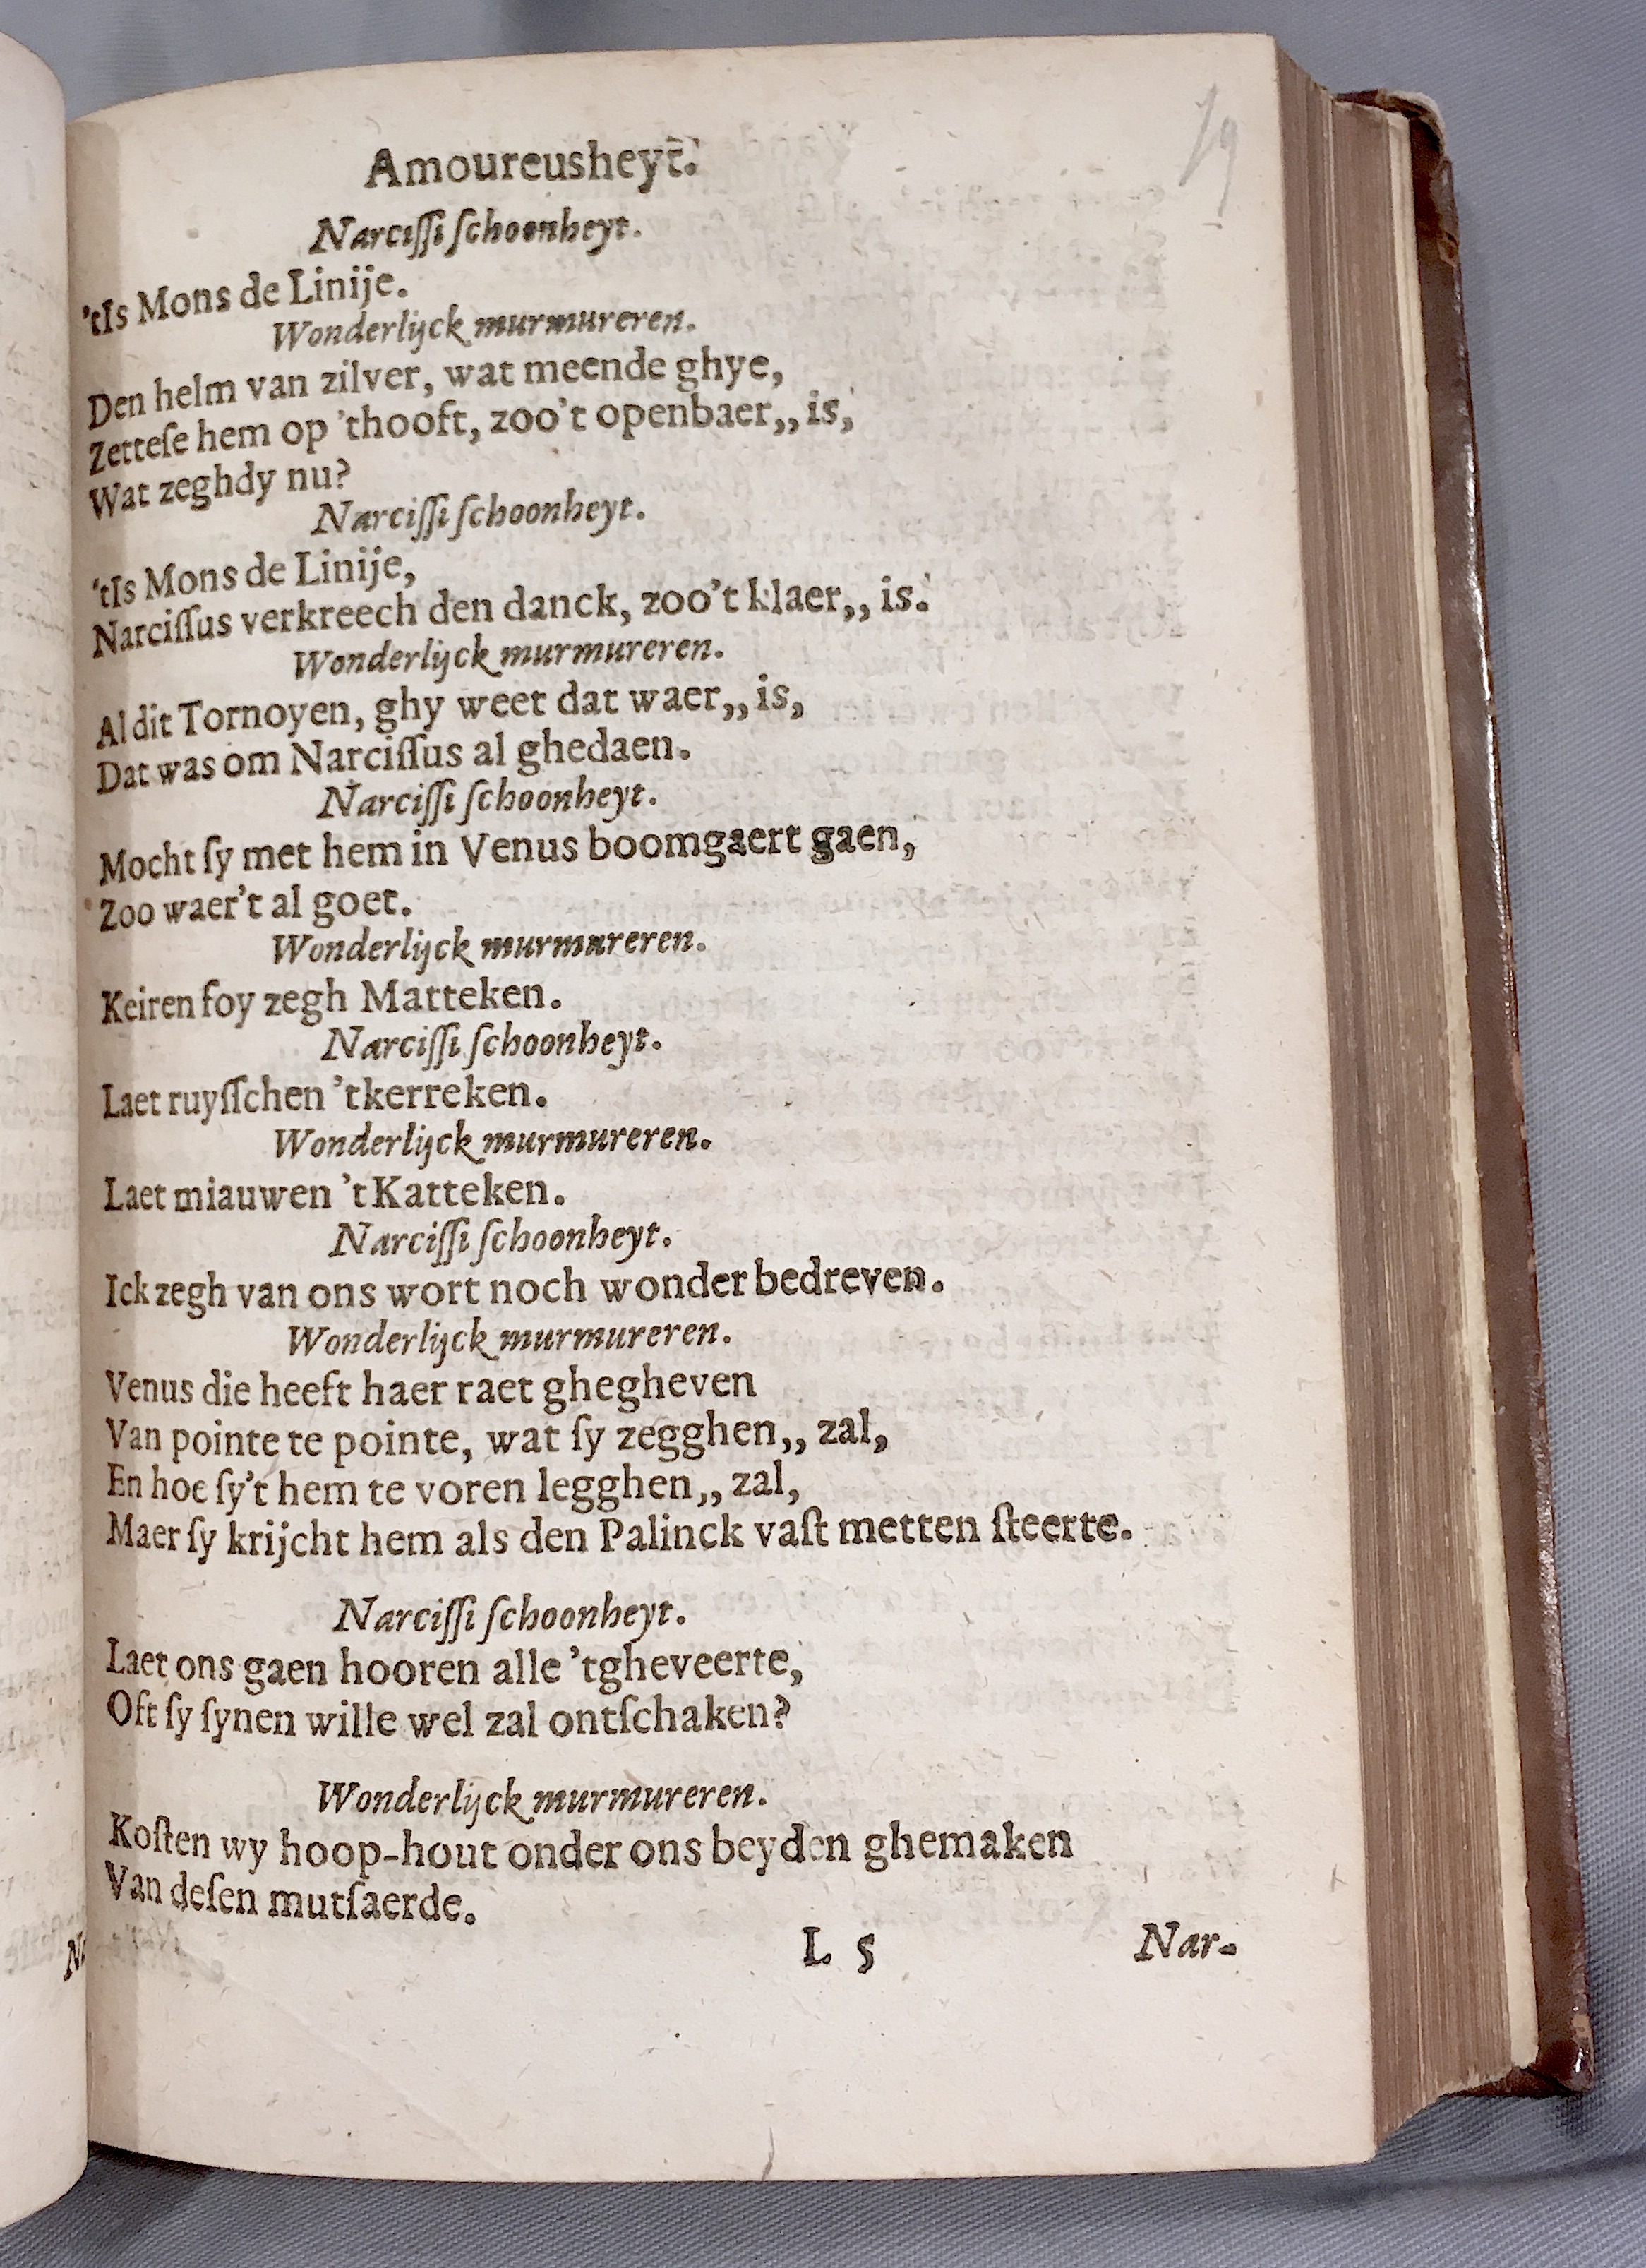 Amoureusheyt.
19
Narciſſi ſchoonheyt.
'tIs Mons de Linije.
Wonderlijck murmureren.
Den helm van zilver, wat meende ghye,
Zetteſe hem op 'thooft, zoo't openbaer,, is,
Wat zeghdy nu?
Narciſſi ſchoonheyt.
'tIs Mons de Linije,
Narciſſus verkreech den danck, zoo't klaer,, is.
Wonderlijck murmureren.
Al dit Tornoyen, ghy weet dat waer,, is,
Dat was om Narciſſus al ghedaen.
Narciſſi ſchoonheyt.
Mocht ſy met hem in Venus boomgaert gaen,
Zoo waer't al goet.
Wonderlijck murmureren.
Keiren foy zegh Matteken.
Narciſſi ſchoonheyt.
Laet ruyſſchen 'tkerreken.
Wonderlijck murmureren.
Laet miauwen 't Katteken.
Narciſſi ſchoonheyt.
Ick zegh van ons wort noch wonder bedreven.
Wonderlijck murmureren.
Venus die heeft haer raet ghegheven
Van pointe te pointe, wat ſy zegghen,, zal,
En hoe ſy't hem te voren legghen,, zal,
Maer ſy krijcht hem als den Palinck vaſt metten ſteerte.
Narciſſi ſchoonheyt.
Laet ons gaen hooren alle 'tgheveerte,
Oft ſy ſynen wille wel zal ontſchaken?
Wonderlijck murmureren.
Koſten wy hoop-hout onder ons beyden ghemaken
Van deſen mutſaerde.
L 5
Nar-